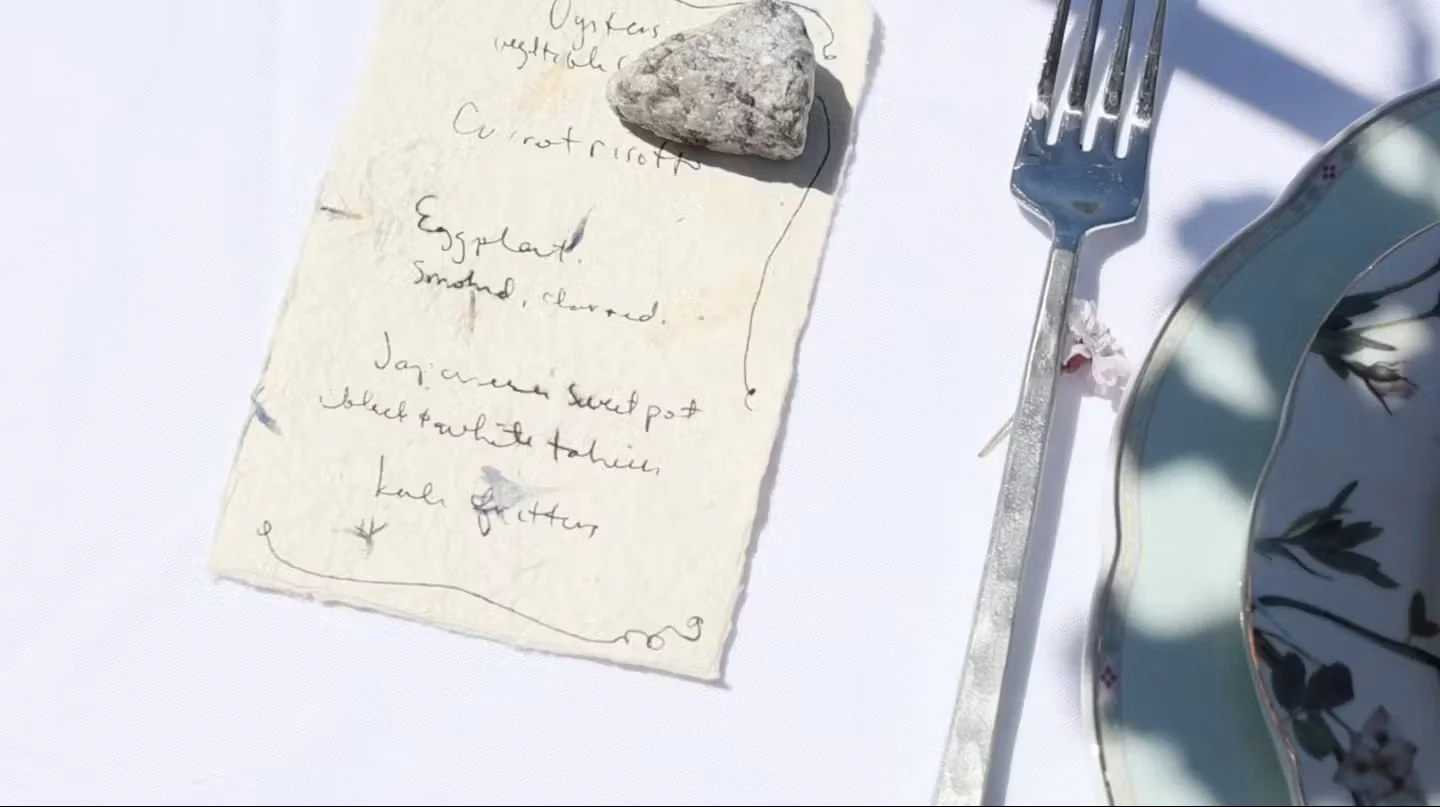 Oysters
vegetable
Carrot risotto
Eggplant.
Smoked, charred.
Japanese sweet pot
black & white tahini
kale fritters